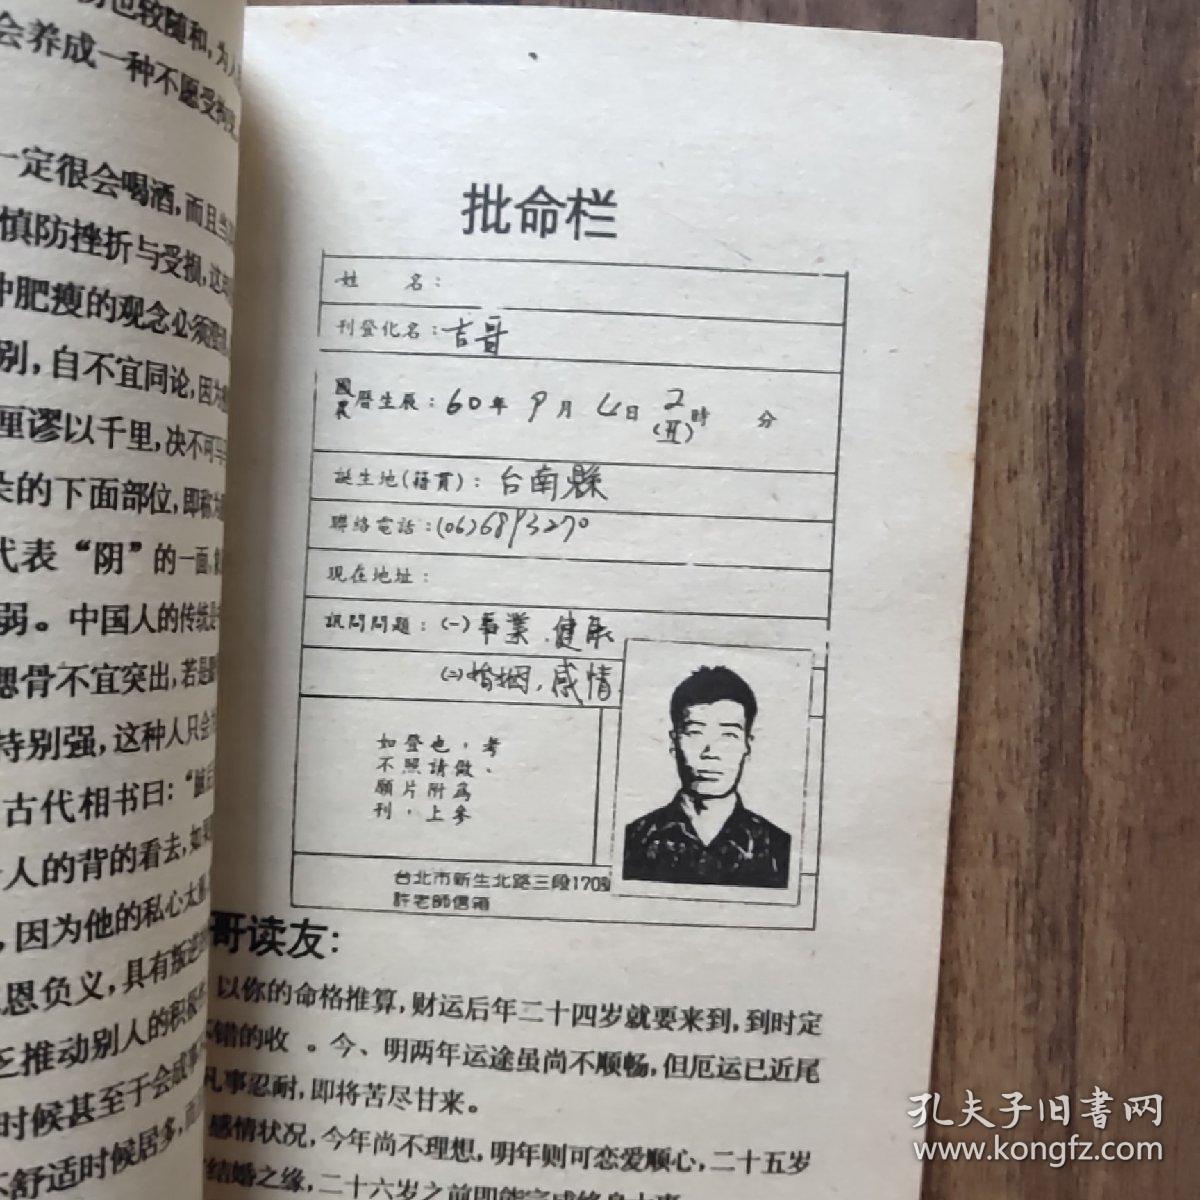 也较随和,为人
会养成一种不愿受拘
一定很会喝酒,而且当
慎防挫折与受损,这
肥瘦的观念必须
别,自不宜同论,因为
厘谬以千里,决不可
的下面部位,即称为
代表“阴”的一面,
弱。中国人的传统是
腮骨不宜突出,若是
特别强,这种人只会
古代相书曰:“
人的背的看去,如果
,因为他的私心太
恩负义,具有叛逆
推动别人的积极
时候甚至于会
舒适时候居多,而
批命栏
姓 名:
刊登化名:吉哥
國農曆生辰:60年 9月 4日 2(丑)時 分
誕生地(籍貫):台南縣
聯絡電話:(06)6893270
現在地址:
訊問問題:(一)事業、健康
(二)婚姻、感情
如登也,考
不照請做、
願片附為
刊,上参
台北市新生北路三段170號
許老師信箱
哥读友:
以你的命格推算,财运后年二十四岁就要来到,到时定
错的收 。今、明两年运途虽尚不顺畅,但厄运已近尾
凡事忍耐,即将苦尽甘来。
感情状况,今年尚不理想,明年则可恋爱顺心,二十五岁
结婚之缘,二十六岁之前即能完成终身大事
孔夫子旧書网
www.kongfz.com